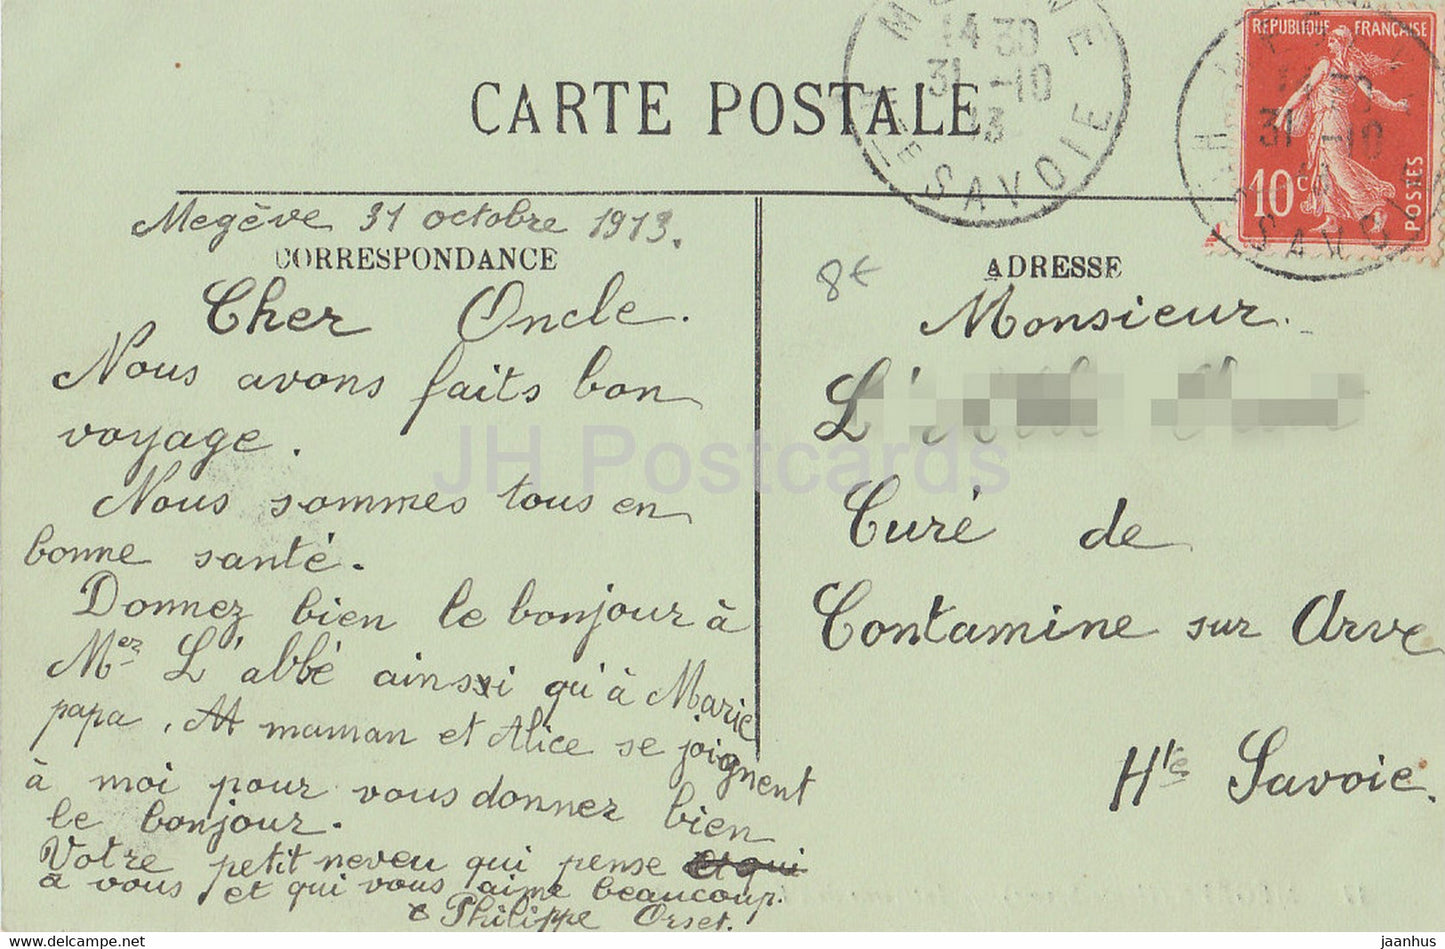 CARTE POSTALE
14 30
31 -10
13
Hte SAVOIE
REPUBLIQUE FRANÇAISE
10c
POSTES
31 -10
SAVO
Megève 31 octobre 1913.
CORRESPONDANCE
Cher Oncle.
Nous avons faits bon
voyage.
Nous sommes tous en
bonne santé.
Donnez bien le bonjour à
Mer L'abbé ainsi qu'à Marie
papa, maman et Alice se joignent
à moi pour vous donner bien
le bonjour.
Votre petit neveu qui pense et qui
a vous et qui vous aime beaucoup.
Philippe Orset.
8€
ADRESSE
Monsieur.
L'
Curé de
Contamine sur Arve
Hte Savoie.
JH Postcards
jaanhus @ delcampe.net